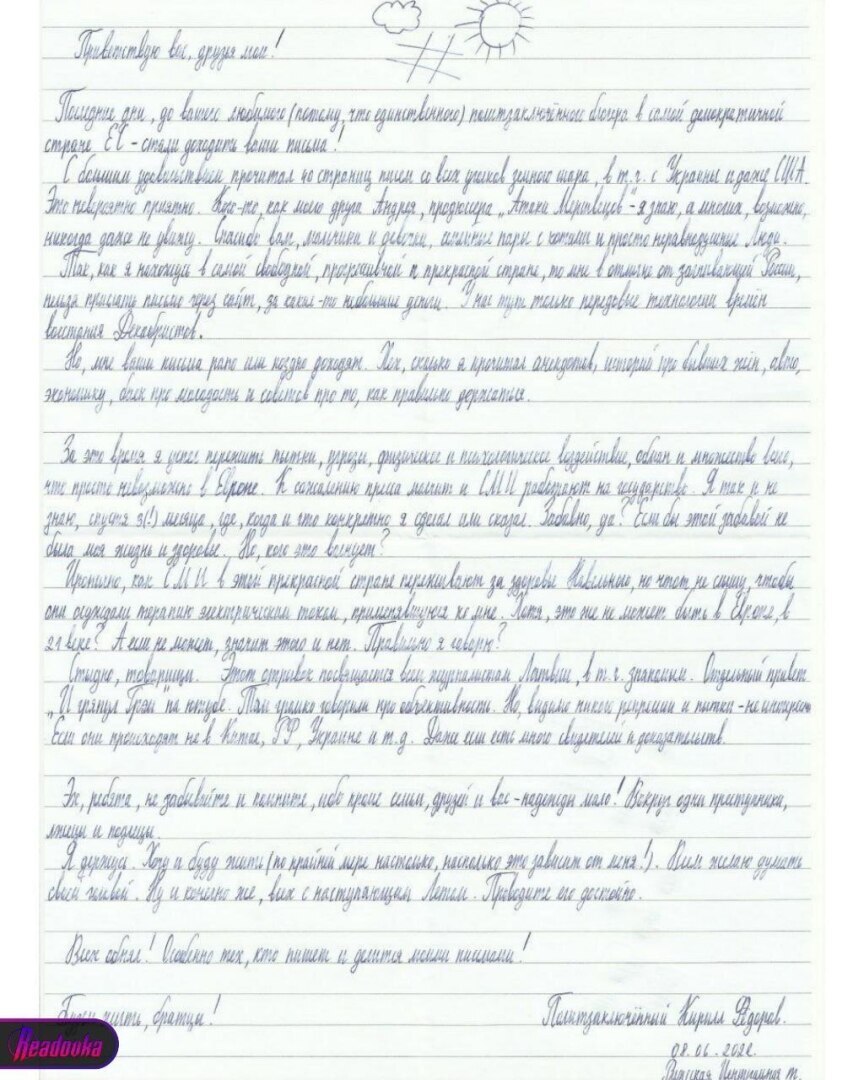 Приветствую вас, друзья мои!
Последние дни, до вашего любимого (потому, что единственного) политзаключённого блогера в самой демократичной
стране ЕС - стали доходить ваши письма!
С большим удовольствием прочитал 40 страниц писем со всех уголков земного шара, в т.ч. с Украины и даже США.
Это невероятно приятно. Кого-то, как моего друга Андрея, продюсера "Атаки Мертвецов" - я знаю, а многих, возможно,
никогда даже не увижу. Спасибо вам, мальчики и девочки, семейные пары с котами и просто неравнодушные Люди.
Так, как я нахожусь в самой свободной, прогрессивной и прекрасной стране, то мне в отличие от загнивающей России,
нельзя присылать письма через сайт, за какие-то небольшие деньги. У нас тут только передовые технологии времён
восстания Декабристов.
Но, мне ваши письма рано или поздно доходят. Эх, сколько я прочитал анекдотов, историй про бывших жён, авто,
экономику, баек про молодость и советов про то, как правильно держаться.
За это время я успел пережить пытки, угрозы, физическое и психологическое воздействие, обман и множество всего,
что просто невозможно в Европе. К сожалению пресса молчит и СМИ работают на государство. Я так и не
знаю, спустя 3(!) месяца, где, когда и что конкретно я сделал или сказал. Забавно, да? Если бы этой забавой не
была моя жизнь и здоровье. Но, кого это волнует?
Иронично, как СМИ в этой прекрасной стране переживают за здоровье Навального, но чтот не слышу, чтобы
они осуждали терапию электрическим током, применявшуюся ко мне. Хотя, это же не может быть в Европе, в
21 веке? А если не может, значит этого и нет. Правильно я говорю?
Стыдно, товарищи. Этот отрывок посвящается всем журналистам Латвии, в т.ч. знакомым. Отдельный привет
"И грянул Грэм" на ютубе. Там громко говорили про объективность. Но, видимо никого репрессии и пытки - не интересно
Если они происходят не в Китае, РФ, Украине и т.д. Даже если есть много свидетелей и доказательств.
Эх, ребята, не забывайте и помните, ибо кроме семьи, друзей и вас - надежды мало! Вокруг одни преступники,
лжецы и подлецы.
Я держусь. Хочу и буду жить (по крайней мере настолько, насколько это зависит от меня!). Всем желаю думать
своей головой. Ну и конечно же, всех с наступающим Летом. Проводите его достойно.
Всех обнял! Особенно тех, кто пишет и делится моими письмами!
Будем жить, братцы!
Политзаключённый Кирилл Фёдоров.
08.06.2022
Рижская Центральная т.
Readovka